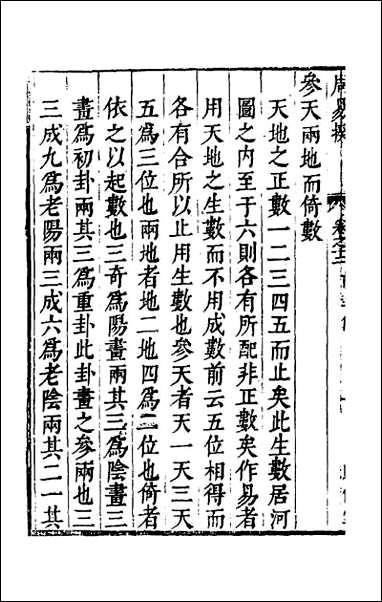 周易揆
卷之十二
參天兩地而倚數
天地之正數一二三四五而止矣此生數居河
圖之内至于六則各有所配非正數矣作易者
用天地之生數而不用成數前云五位相得而
各有合所以止用生數也參天者天一天三天
五爲三位也兩地者地二地四爲二位也倚者
依之以起數也三奇爲陽畫兩其三爲陰畫三
畫爲初卦兩其三爲重卦此卦畫之參兩也三
三成九爲老陽兩三成六爲老陰兩其二一其